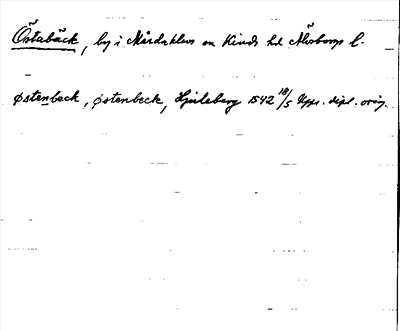 Östabäck, by i Mårdaklevs sn Kinds hd Älvsborgs l.
østenbeck, østenbeck, Hjuleberg 1542 18/5 Upps. dipl. orig.